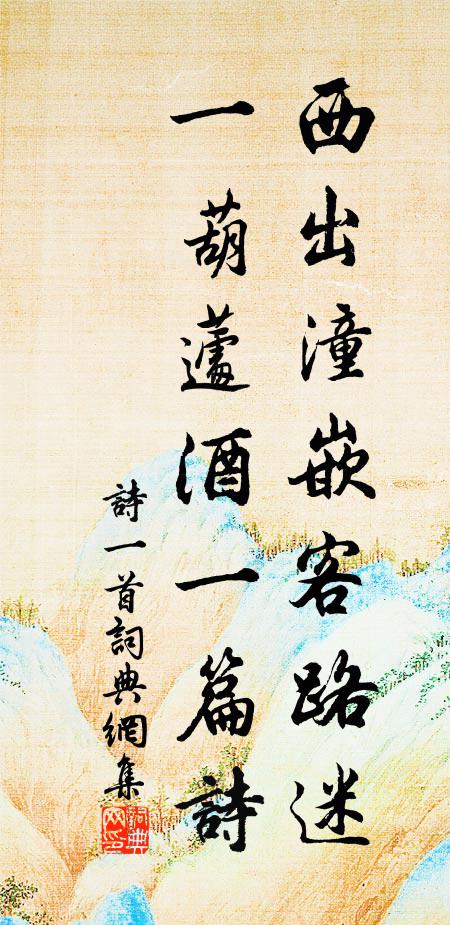 西出潼嵌客路迷
一葫蘆酒一篇詩
詩一首詞典網集